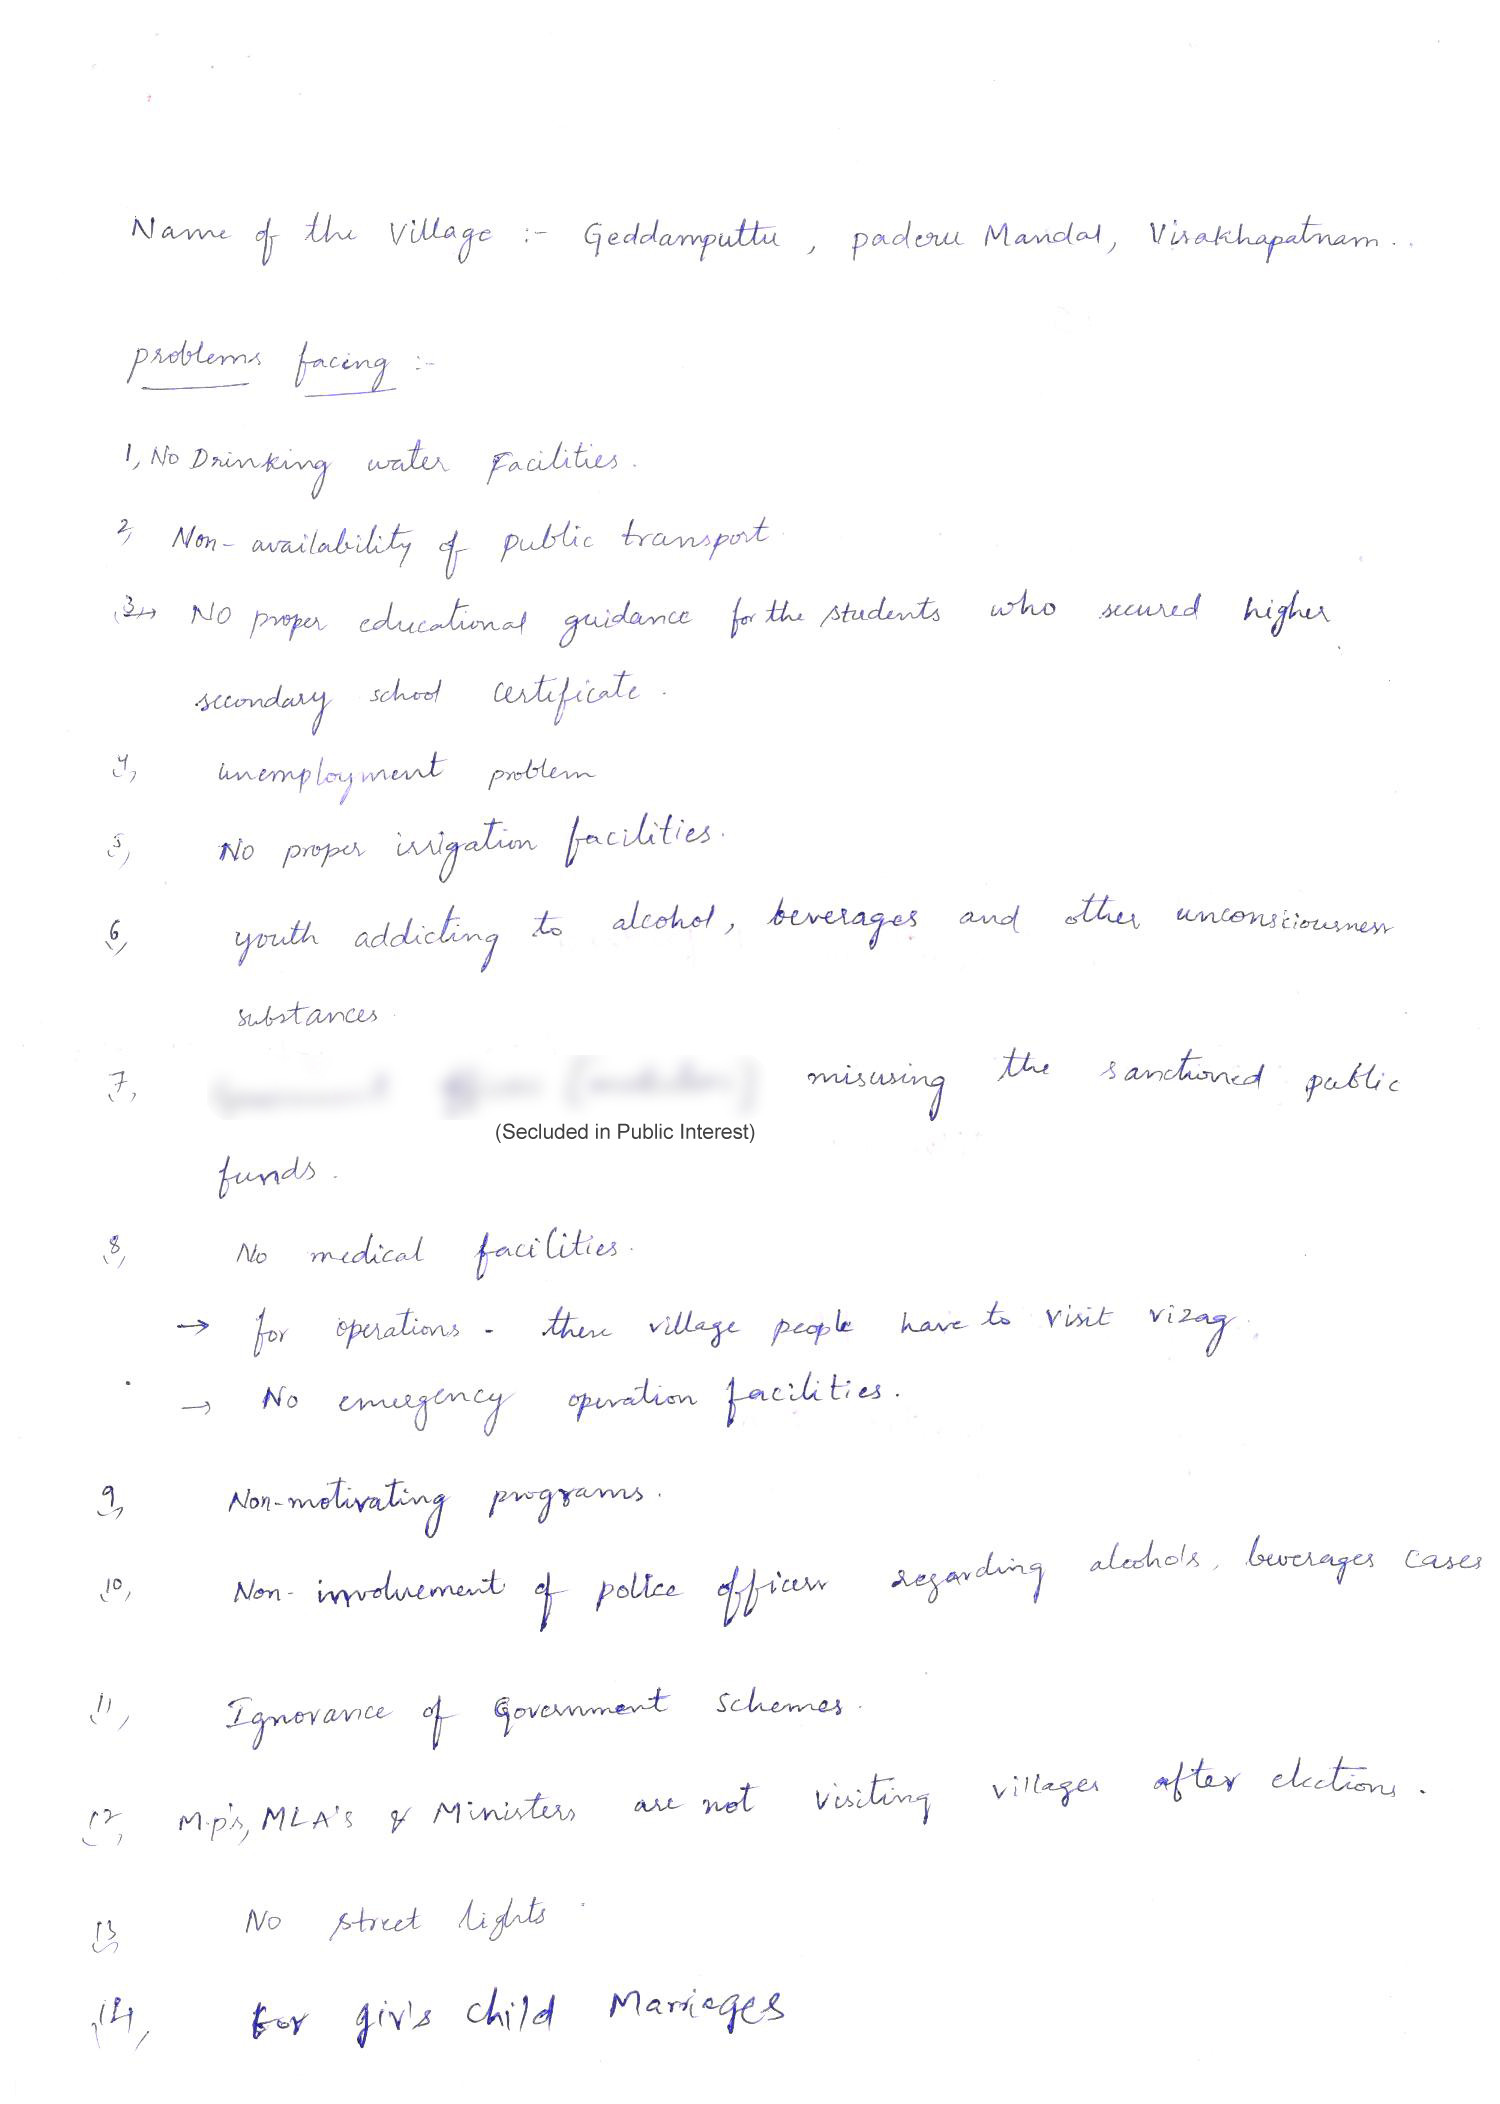 Name of the Village :- Geddamputtu, paderu Mandal, Visakhapatnam..
problems facing :-
1, No Drinking water Facilities.
2, Non-availability of public transport
3, → No proper educational guidance for the students who secured higher
secondary school certificate.
4, unemployment problem
5, No proper irrigation facilities.
6, youth addicting to alcohol, beverages and other unconsiousness
substances
7, misusing the sanctioned public
(Secluded in Public Interest)
funds.
8, No medical facilities.
→ for operations - these village people have to visit vizag.
→ No emergency operation facilities.
9, Non-motivating programs.
10, Non-involvement of police officers regarding alcohols, beverages cases
11, Ignorance of Government schemes.
12, M.p's, MLA's & Ministers are not visiting villages after elections.
13 No street lights.
14, For gir's child Marriages